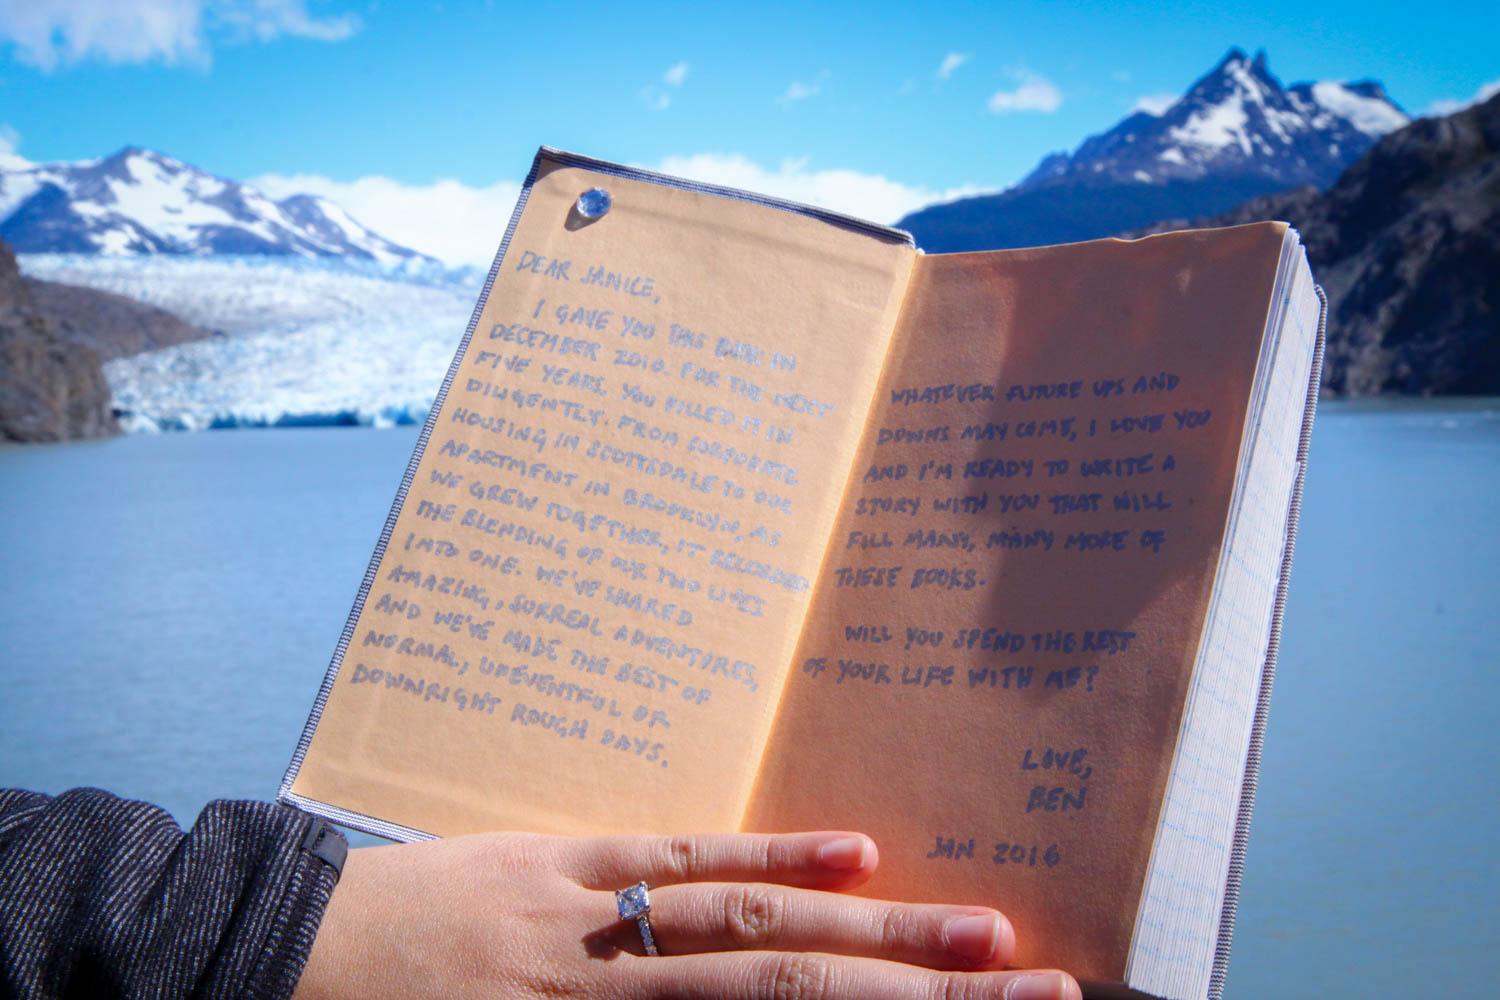 DEAR JANICE,
I GAVE YOU THIS BOOK IN
DECEMBER 2010. FOR THE NEXT
FIVE YEARS, YOU FILLED IT IN
DILIGENTLY. FROM CORPORATE
HOUSING IN SCOTTSDALE TO OUR
APARTMENT IN BROOKLYN, AS
WE GREW TOGETHER, IT RECORDED
THE BLENDING OF OUR TWO LIVES
INTO ONE. WE'VE SHARED
AMAZING, SURREAL ADVENTURES,
AND WE'VE MADE THE BEST OF
NORMAL, UNEVENTFUL OR
DOWNRIGHT ROUGH DAYS.
WHATEVER FUTURE UPS AND
DOWNS MAY COME, I LOVE YOU
AND I'M READY TO WRITE A
STORY WITH YOU THAT WILL
FILL MANY, MANY MORE OF
THESE BOOKS.
WILL YOU SPEND THE REST
OF YOUR LIFE WITH ME?
LOVE,
BEN
JAN 2016